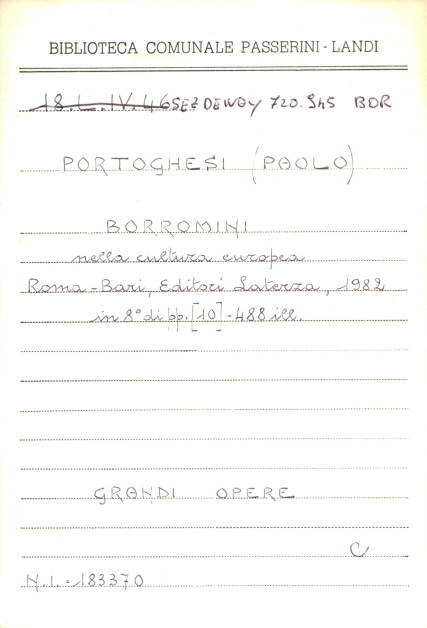 BIBLIOTECA COMUNALE PASSERINI-LANDI
18.L.IV.46 SEZ DEWEY 720.945 BOR
PORTOGHESI (PAOLO)
BORROMINI
nella cultura europea
Roma-Bari, Editori Laterza, 1982
in 8° di pp. [10]-488 ill.
GRANDI OPERE
C
N.I.-183370